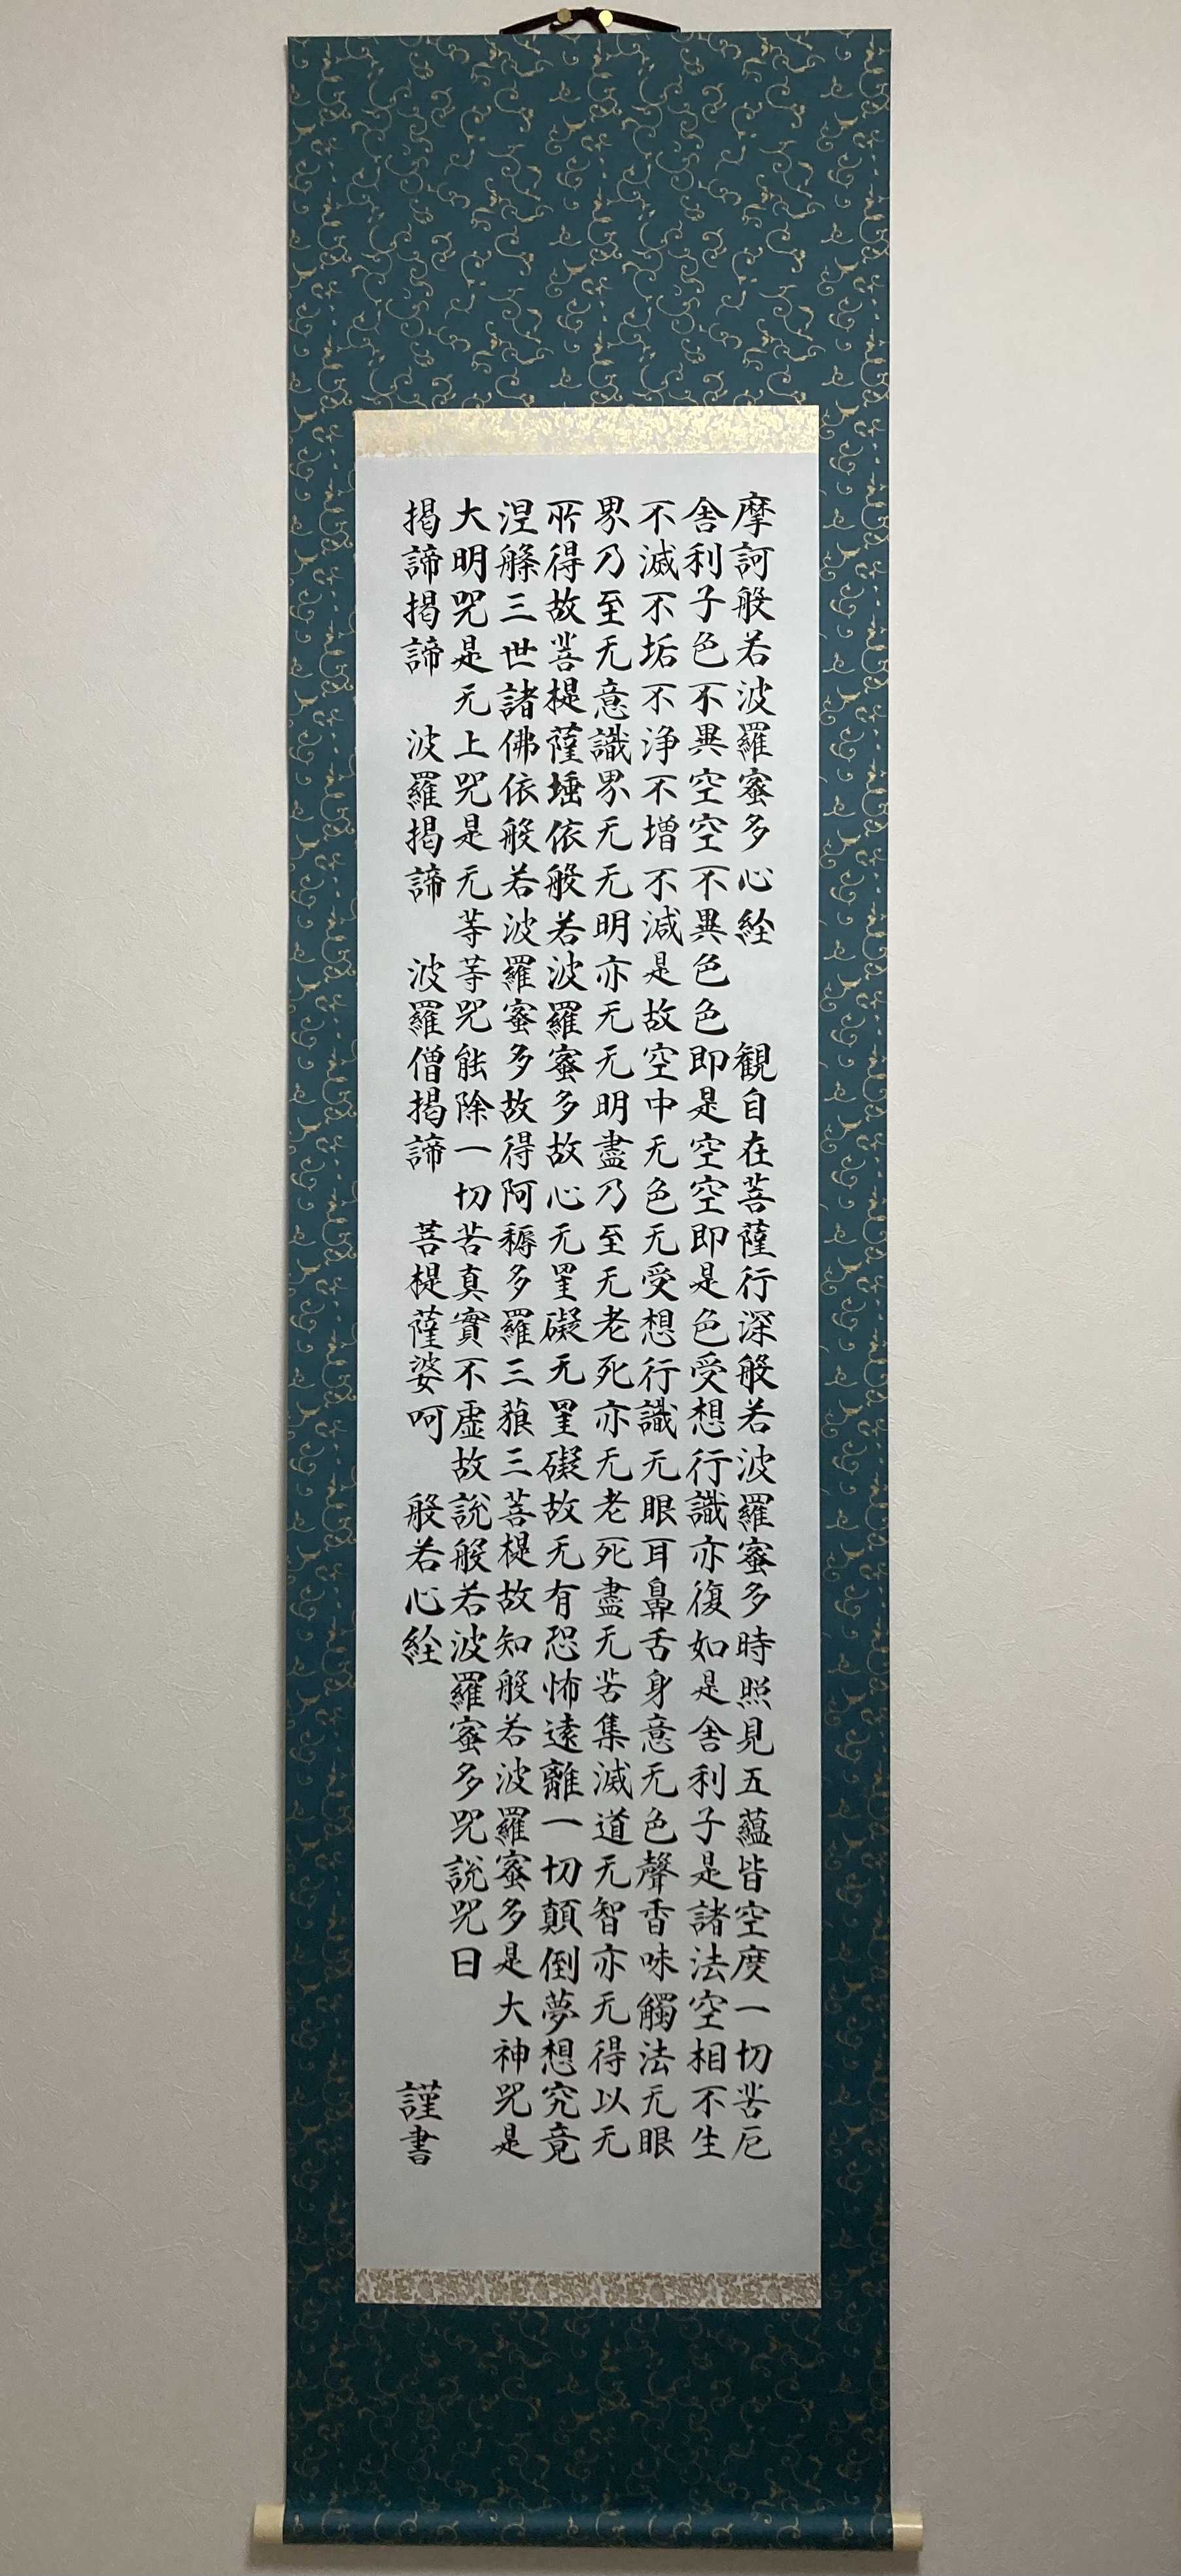 摩訶般若波羅蜜多心経　観自在菩薩行深般若波羅蜜多時照見五蘊皆空度一切苦厄
舎利子色不異空空不異色色即是空空即是色受想行識亦復如是舎利子是諸法空相不生
不滅不垢不浄不増不減是故空中无色无受想行識无眼耳鼻舌身意无色聲香味觸法无眼
界乃至无意識界无无明亦无无明盡乃至无老死亦无老死盡无苦集滅道无智亦无得以无
所得故菩提薩埵依般若波羅蜜多故心无罣礙无罣礙故无有恐怖遠離一切顛倒夢想究竟
涅槃三世諸佛依般若波羅蜜多故得阿耨多羅三藐三菩提故知般若波羅蜜多是大神咒是
大明咒是无上咒是无等等咒能除一切苦真實不虚故説般若波羅蜜多咒説咒曰
掲諦掲諦　波羅掲諦　波羅僧掲諦　菩提薩婆呵　般若心経　謹書